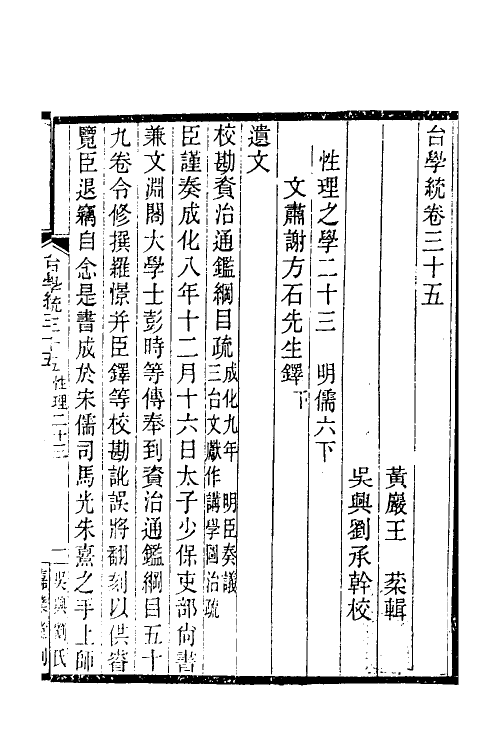 台學統卷三十五
黃巖王棻輯
吳興劉承幹校
性理之學二十三　明儒六下
文肅謝方石先生鐸下
遺文
校勘資治通鑑綱目疏成化九年　明臣奏議三台文獻作講學圖治疏
臣謹奏成化八年十二月十六日太子少保吏部尚書
兼文淵閣大學士彭時等傳奉到資治通鑑綱目五十
九卷令修撰羅憬并臣鐸等校勘訛誤將翻刻以供睿
覽臣退竊自念是書成於宋儒司馬光朱熹之手上師
台學統三十五　性理二十三　一　吳興劉氏
嘉業堂刊